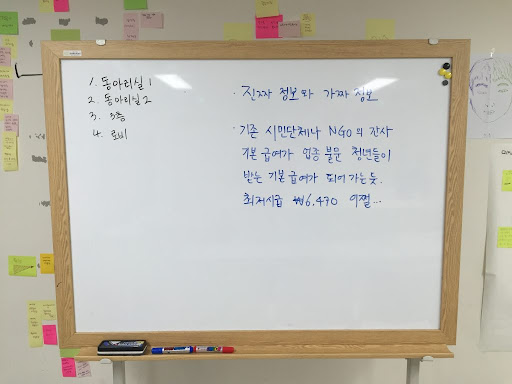 1. 동아리실 1
2. 동아리실 2
3. 3층
4. 로비
· 진짜 정보와 가짜 정보
· 기존 시민단체나 NGO의 간사
기본급여가 업종 불문 청년들이
받는 기본급여가 되어가는 듯.
최저시급 ₩6,470 어쩔...